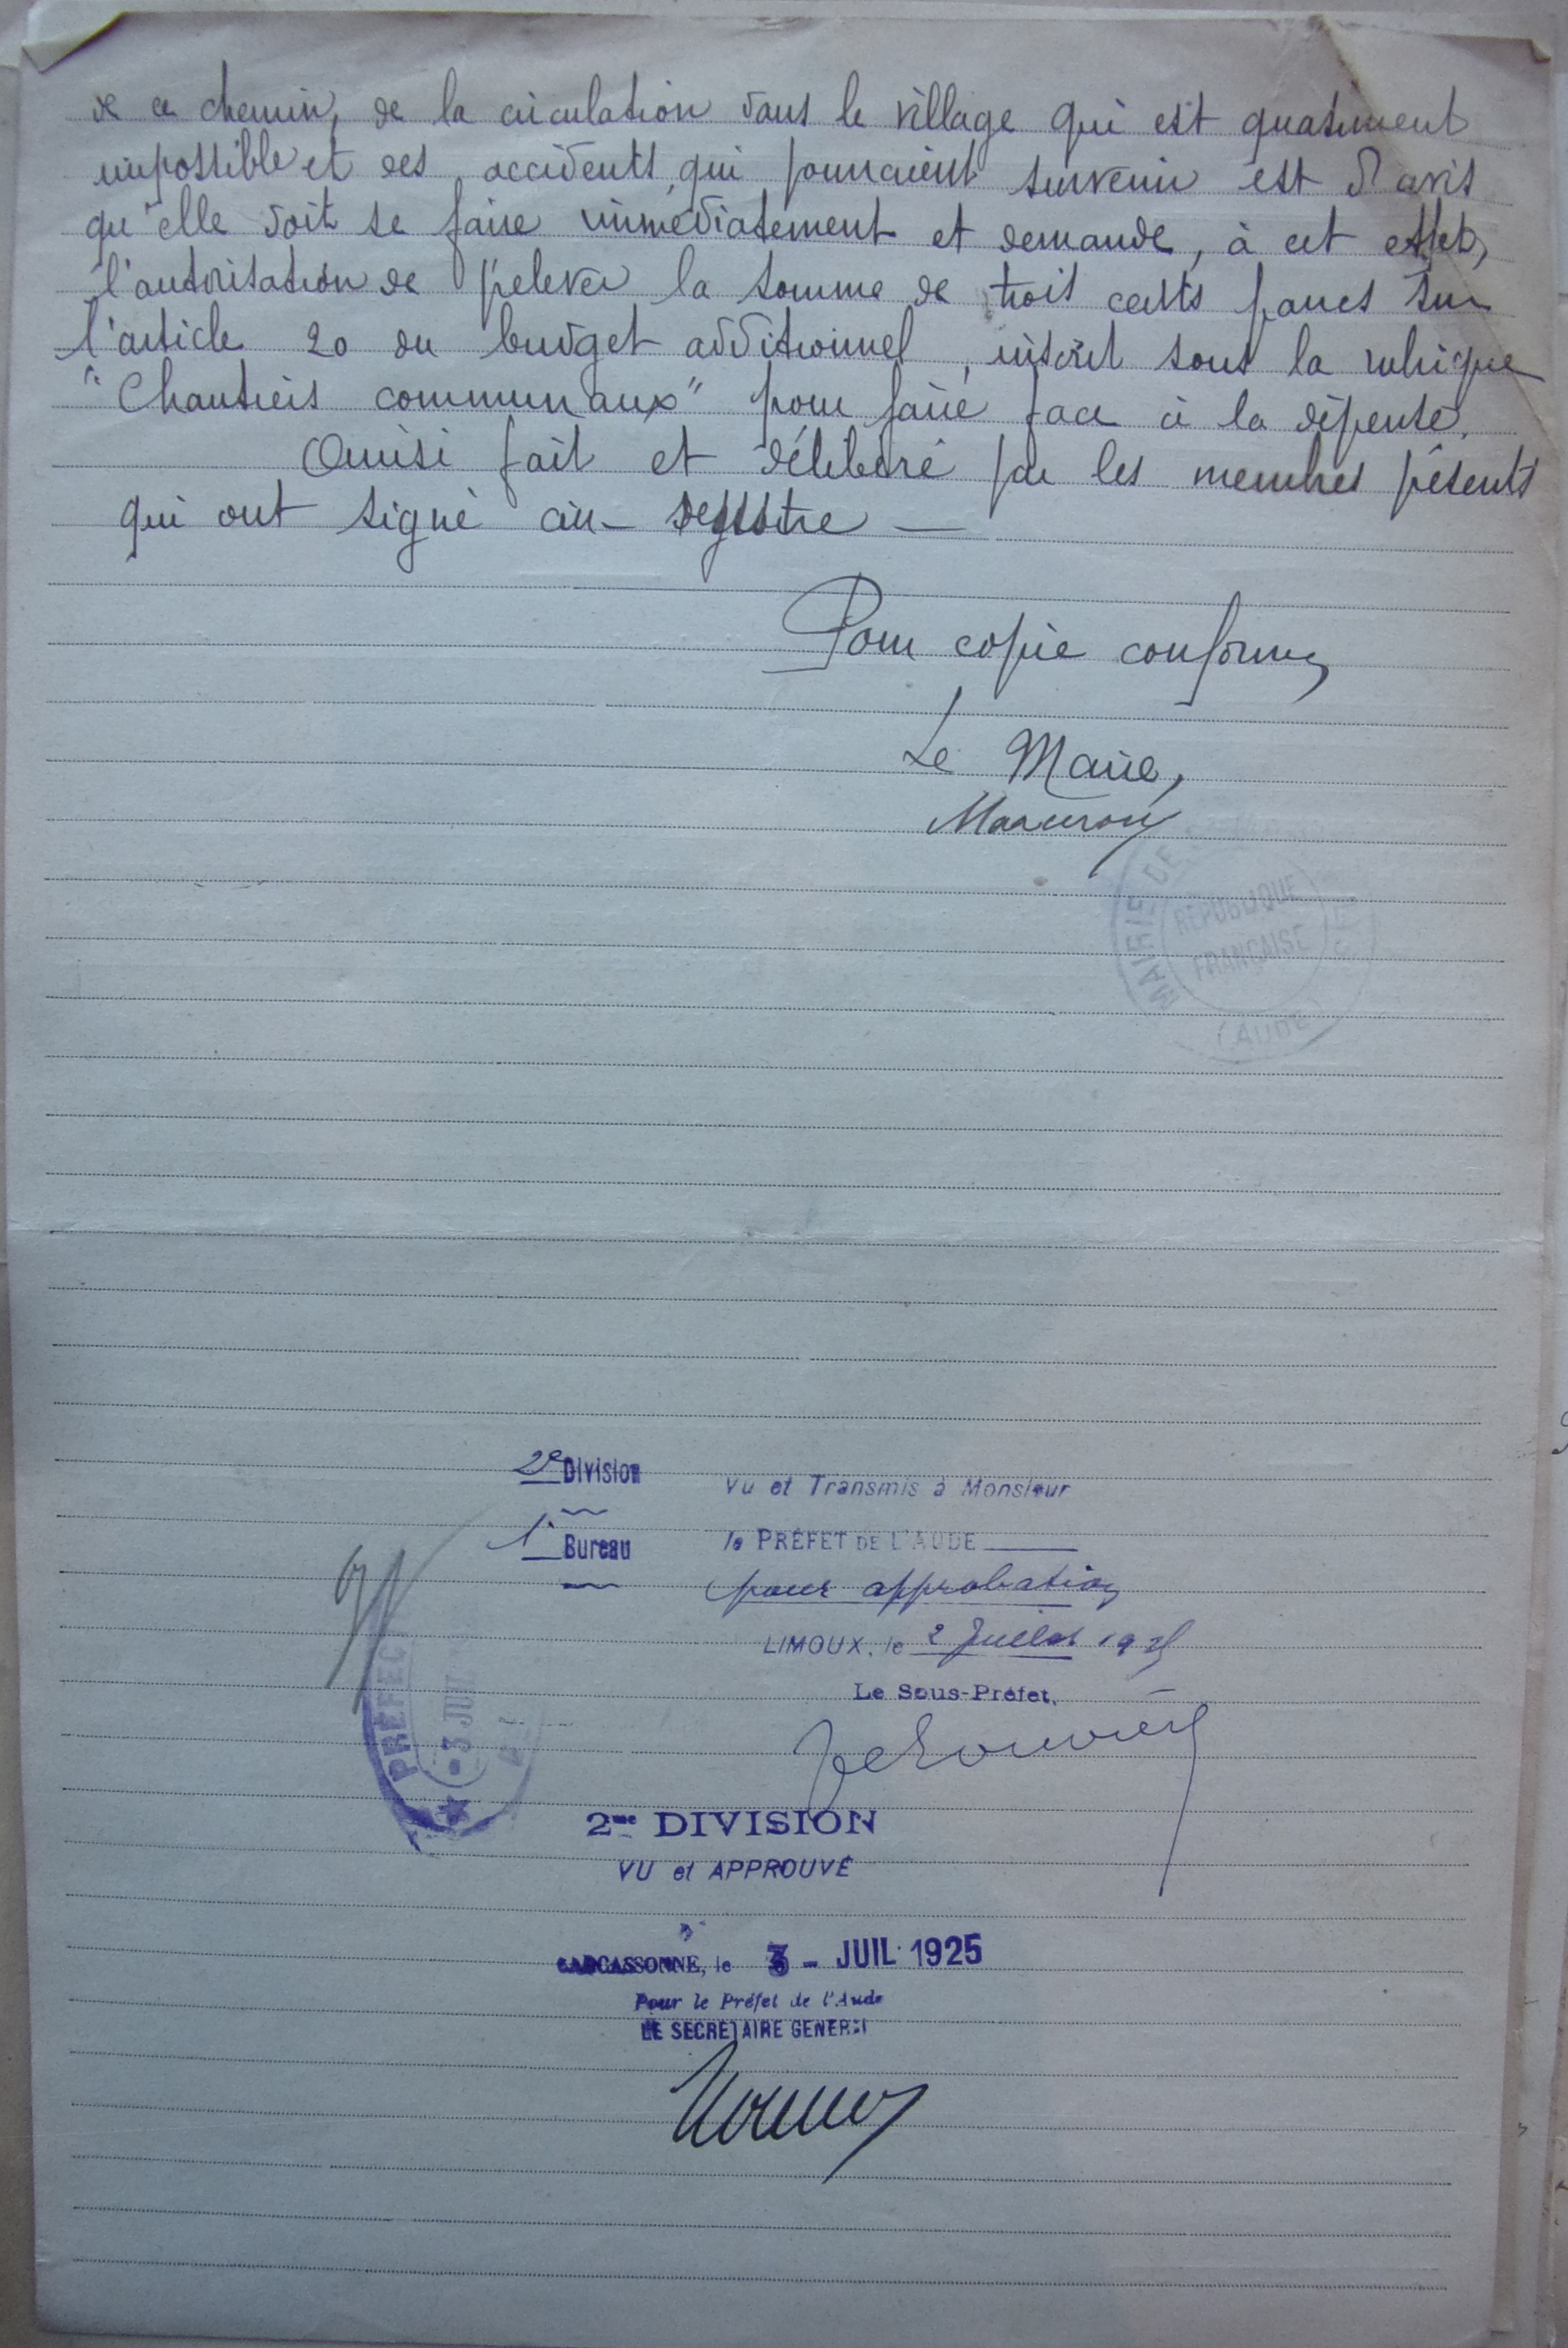 de ce chemin, de la circulation dans le village qui est quasiment
impossible et des accidents qui pourraient survenir est d'avis
qu'elle doit se faire immédiatement et demande, à cet effet,
l'autorisation de prélever la somme de trois cents francs sur
l'article 20 du budget additionnel, inscrit sous la rubrique
"Chantiers communaux" pour faire face à la dépense.
Ainsi fait et délibéré par les membres présents
qui ont signé au registre —
Pour copie conforme,
Le Maire,
MAIRIE DE
RÉPUBLIQUE
FRANÇAISE
(AUDE)
2e Division
1er Bureau
Vu et Transmis à Monsieur
le PRÉFET DE L'AUDE
pour approbation
LIMOUX, le 2 Juillet 1925
Le Sous-Préfet,
PREFEC
- 3 JUIL
2me DIVISION
VU et APPROUVÉ
CARCASSONNE, le 3 - JUIL 1925
Pour le Préfet de l'Aude
LE SECRETAIRE GENERAL